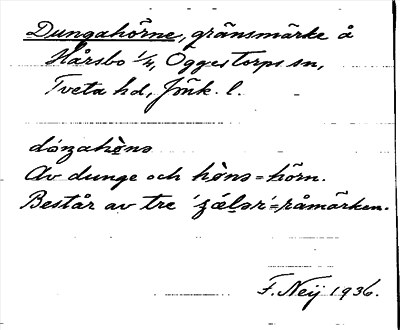 Dungahörne, gränsmärke å
Hårsbo 1/4, Öggestorps sn,
Tveta hd, Jönk. l.
dóŋahò̤nə
Av dunge och hò̤nə = hörn.
Består av tre 'ʒǽlər' = råmärken.
F. Neij 1936.